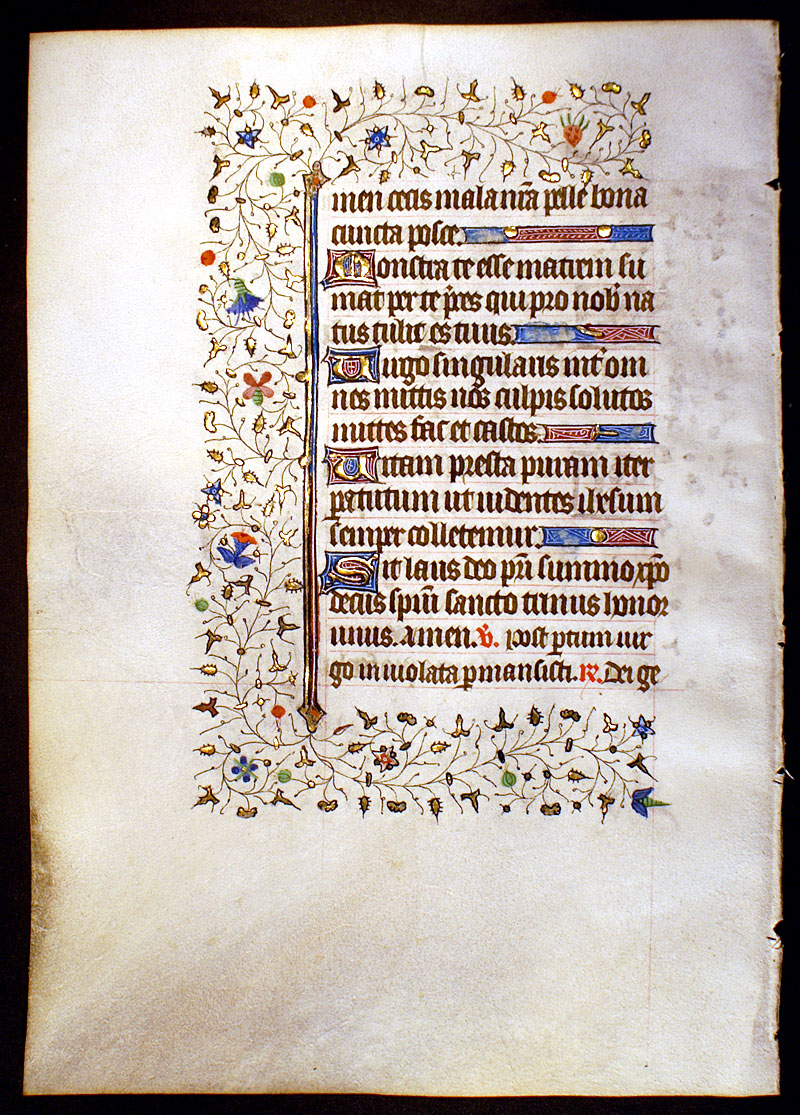 men cecis mala nr̄a pelle bona
cuncta posce.
Monstra te esse matrem su
mat per te p̄ces qui pro nob̄ na
tus tulit es tuus.
Virgo singularis int̄ om
nes mittis nos culpis solutos
mittes fac et castos.
Vitam presta puram iter
para tutum ut uidentes ih̄esum
semper colletemur.
Sit laus deo pr̄i summo xp̄o
decus sp̄ui sancto trinus honor
unus. Amen. v̄. Post partum uir
go inuiolata ꝑmansisti. R̄. Dei ge